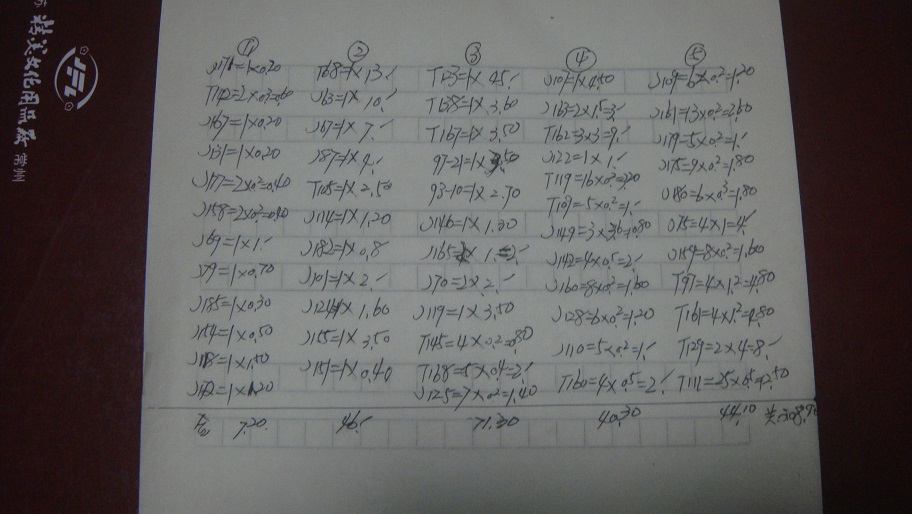 精美文化用品 常州
① ② ③ ④ ⑤
J171=1×0.20 T68=1×13. T123=1×45. J107=1×4.50 J109=6×0.2=1.20
T142=2×0.3=0.60 J63=1×10. T138=1×3.60 J163=2×1.5=3. J161=13×0.2=2.60
J167=1×0.20 J67=1×7. T167=1×3.50 T162=3×3=9. J119=5×0.2=1.
J131=1×0.20 J87=1×4. 97-21=1×3.50 J122=1×1. J175=9×0.2=1.80
J177=2×0.2=0.40 T105=1×2.50 93-10=1×2.70 T119=16×0.2=3.20 J180=6×0.3=1.80
J158=2×0.2=0.40 J114=1×1.20 J146=1×1.30 T107=5×0.2=1. J75=4×1=4.
J69=1×1. J182=1×0.8 J165= J149=3× J159=8×0.2=1.60
J79=1×0.70 J101=1×2. J70=1×2. J142=4×0.5=2. T97=4×1.2=4.80
J185=1×0.30 J124=1×1.60 J119=1×3.50 J160=8×0.2=1.60 T161=4×1.2=4.80
J154=1×0.50 J155=1×3.50 T145=4×0.2=0.80 J128=6×0.2=1.20 T129=2×4=8.
J118=1×1.50 J151=1×0.40 T168=5×0.4=2. J110=5×0.2=1. T111=25×0.5=2.50
J172=1×1.20 J125=7×0.2=1.40 T160=4×0.5=2.
7.20 46. 71.30 40.30 44.10 共:308.